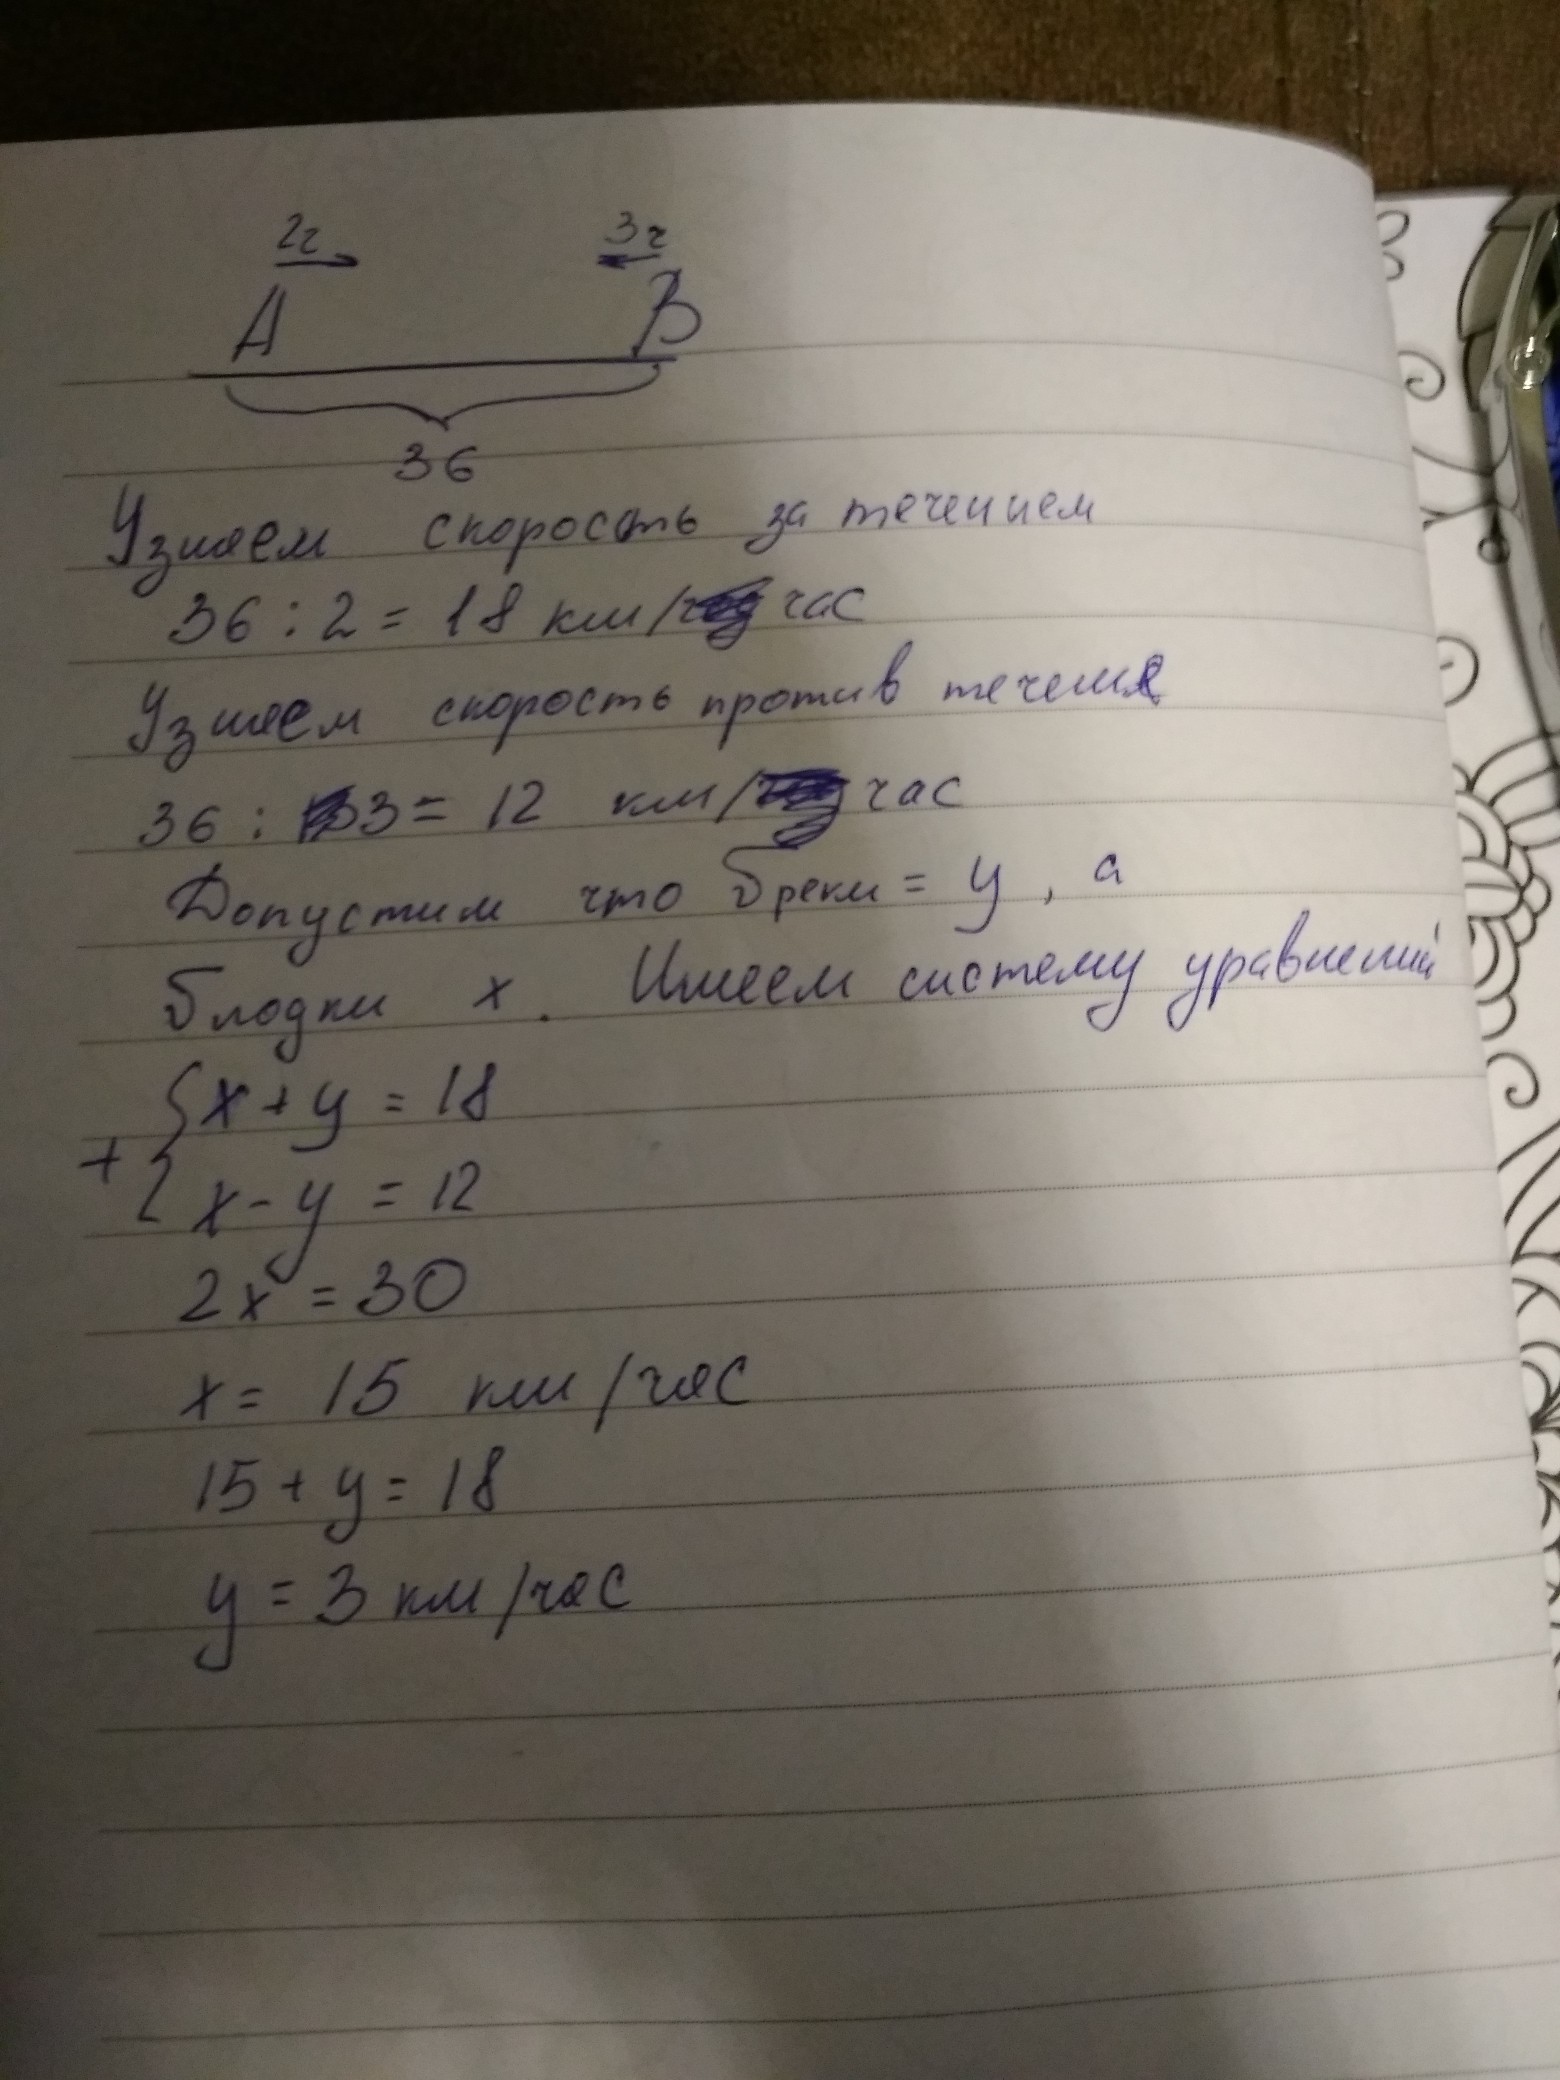 2ч 3ч
A B
36
Узнаем скорость за течением
36 : 2 = 18 км/час
Узнаем скорость против течения
36 : 3 = 12 км/час
Допустим что Vреки = y, а
Vлодки x. Имеем систему уравнений
{ x + y = 18
+
{ x - y = 12
2x = 30
x = 15 км/час
15 + y = 18
y = 3 км/час